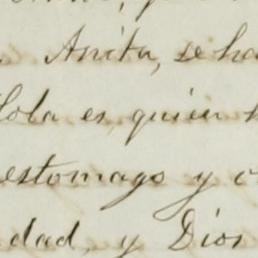 Anita, se ha
es, quien
estomago y
dad, y Dios